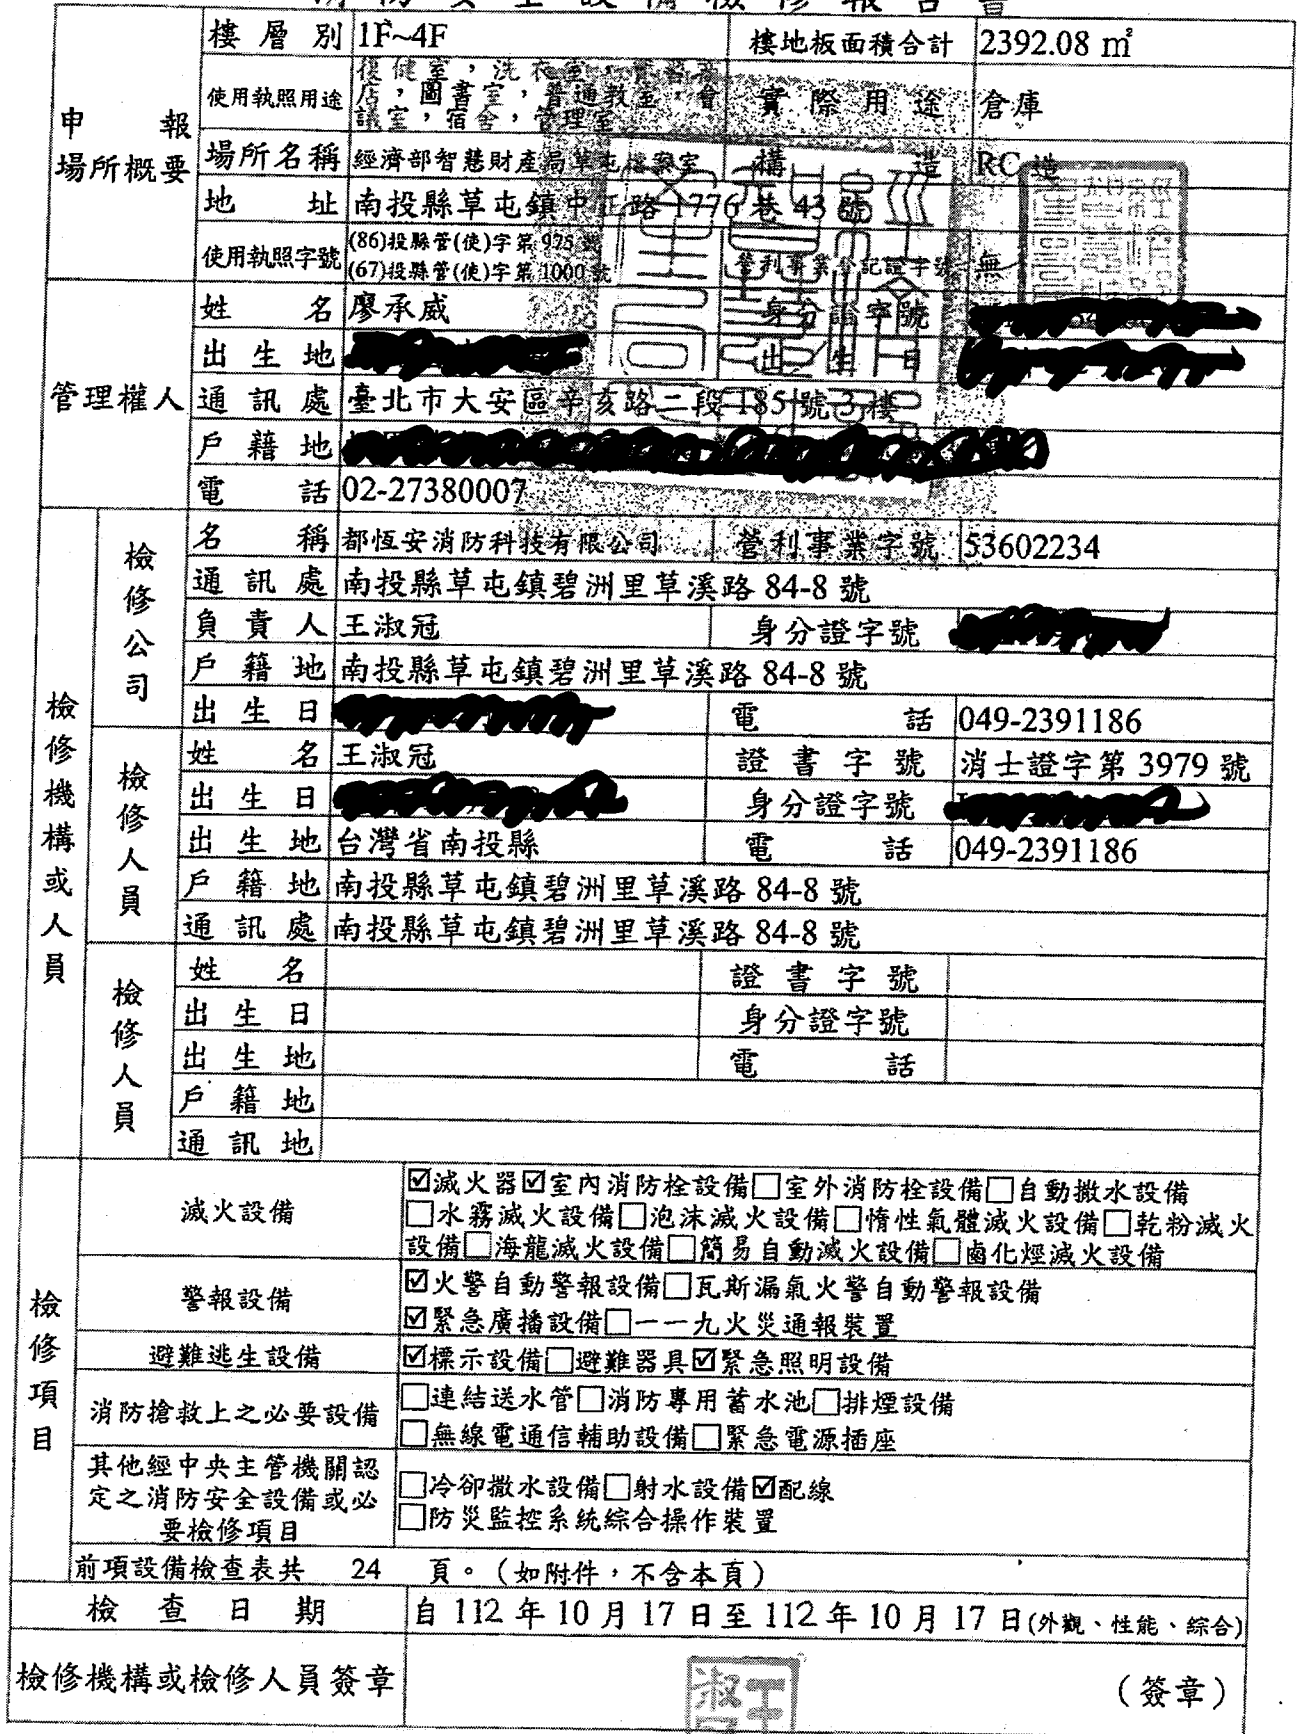 消防安全設備檢修報告書
樓層別 1F~4F 樓地板面積合計 2392.08 ㎡
使用執照用途 復健室，洗衣室，
店，圖書室，普通教室，會
議室，宿舍，管理室 實際用途 倉庫
申報場所概要
場所名稱 經濟部智慧財產局草屯檔案室 構造 RC 造
地址 南投縣草屯鎮中正路 1776 巷 43 號
使用執照字號 (86)投縣管(使)字第 925 號
(67)投縣管(使)字第 1000 號 營利事業登記證字號 無
管理權人
姓名 廖承威 身分證字號
出生地 出生日
通訊處 臺北市大安區辛亥路二段 185 號 3 樓
戶籍地
電話 02-27380007
檢修機構或人員
檢修公司
名稱 都恆安消防科技有限公司 營利事業字號 53602234
通訊處 南投縣草屯鎮碧洲里草溪路 84-8 號
負責人 王淑冠 身分證字號
戶籍地 南投縣草屯鎮碧洲里草溪路 84-8 號
出生日 電話 049-2391186
檢修人員
姓名 王淑冠 證書字號 消士證字第 3979 號
出生日 身分證字號
出生地 台灣省南投縣 電話 049-2391186
戶籍地 南投縣草屯鎮碧洲里草溪路 84-8 號
通訊處 南投縣草屯鎮碧洲里草溪路 84-8 號
檢修人員
姓名 證書字號
出生日 身分證字號
出生地 電話
戶籍地
通訊地
檢修項目
滅火設備 ☑滅火器☑室內消防栓設備□室外消防栓設備□自動撒水設備
□水霧滅火設備□泡沫滅火設備□惰性氣體滅火設備□乾粉滅火
設備□海龍滅火設備□簡易自動滅火設備□鹵化烴滅火設備
警報設備 ☑火警自動警報設備□瓦斯漏氣火警自動警報設備
☑緊急廣播設備□一一九火災通報裝置
避難逃生設備 ☑標示設備□避難器具☑緊急照明設備
消防搶救上之必要設備 □連結送水管□消防專用蓄水池□排煙設備
□無線電通信輔助設備□緊急電源插座
其他經中央主管機關認
定之消防安全設備或必
要檢修項目 □冷卻撒水設備□射水設備☑配線
□防災監控系統綜合操作裝置
前項設備檢查表共 24 頁。（如附件，不含本頁）
檢查日期 自 112 年 10 月 17 日至 112 年 10 月 17 日(外觀、性能、綜合)
檢修機構或檢修人員簽章 （簽章）